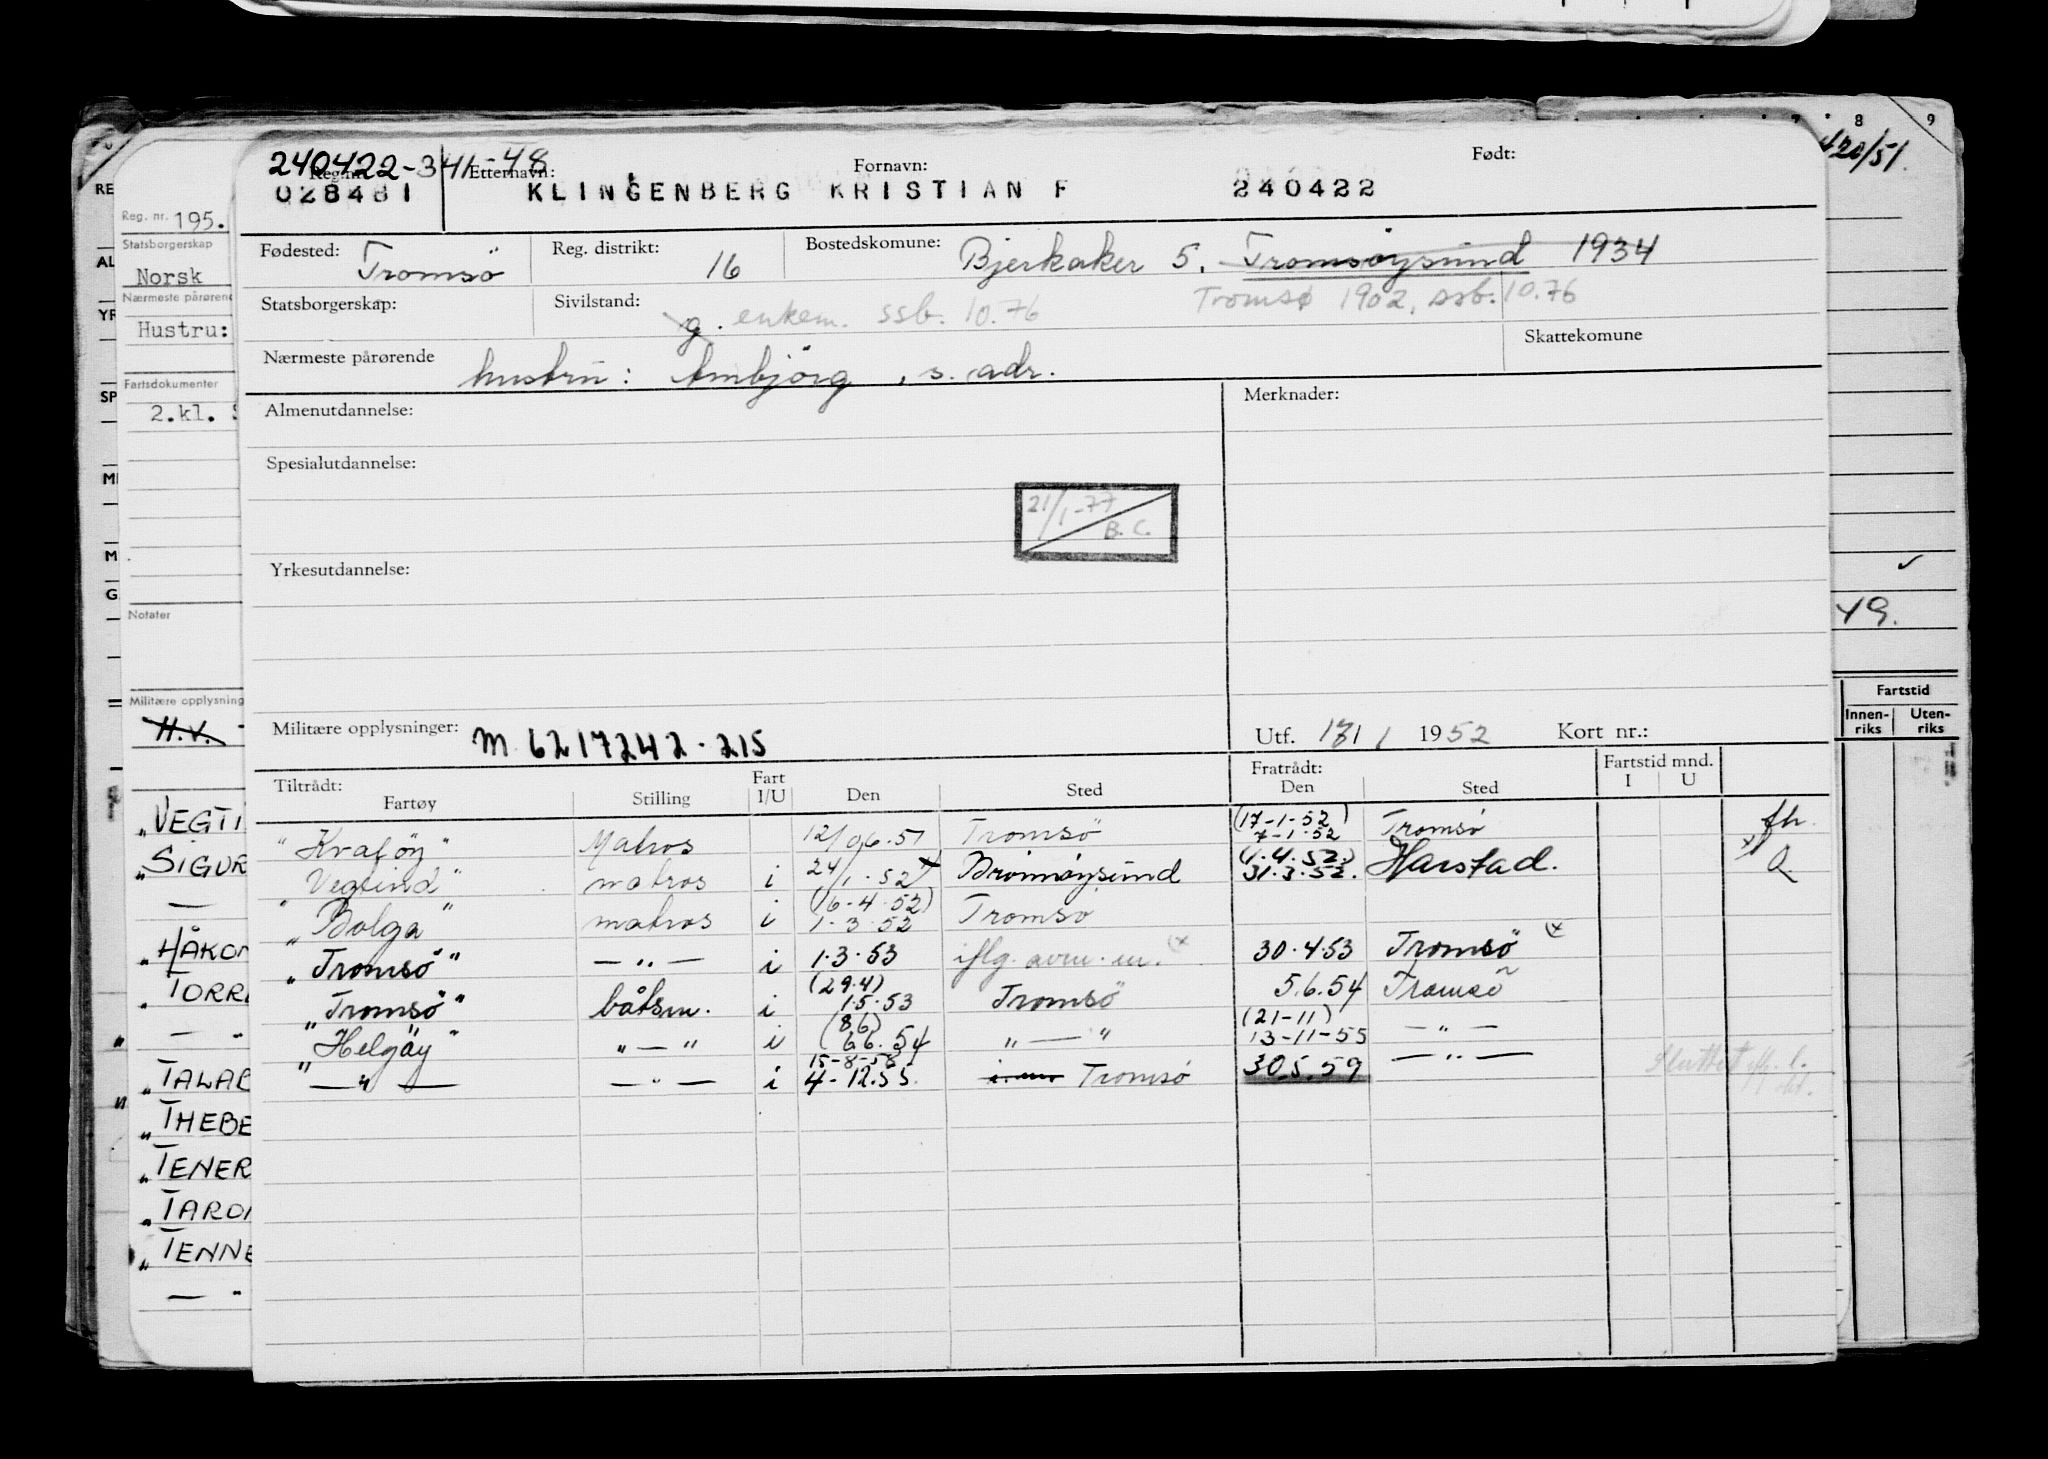 240422-341-48
Reg.nr. Etternavn: Fornavn: Født:
028481 KLINGENBERG KRISTIAN F 240422
Fødested: Tromsö Reg. distrikt: 16 Bostedskomune: Bjerkaker 5. Tromsøysund 1934
Statsborgerskap: Sivilstand: g. enkem. ssb. 10.76 Tromsø 1902, ssb. 10.76
Nærmeste pårørende hustru: , s. adr. Skattekomune
Almenutdannelse: Merknader:
Spesialutdannelse:
21/1-77
B. C.
Yrkesutdannelse:
Militære opplysninger: M 6217242-215 Utf. 1952 Kort nr.:
Tiltrådt: Fart Fratrådt: Fartstid mnd.
Fartøy Stilling I/U Den Sted Den Sted I U
(17-1-52)
"Kvaløy" Matros 12/06.51 Tromsö 7-1-52 Tromsö fh.
(1.4.52)
"Vegtind" matros i 24/1.52 x Brönnöysund 31.3.52. Harstad. x
(16-4-52)
"Bolga" matros i 1-3-52 Tromsö
"Tromsö" — „ — i 1.3.53 iflg. avm. m. (x 30.4.53 Tromsö (x
(29.4)
"Tromsö" båtsm. i 1.5.53 Tromsö 5.6.54 Tromsö
(8.6) (21-11)
"Helgöy" „ — „ i 6.6.54 „ — „ 13-11-55 — „ —
15-8-58
— „ — — „ — i 4-12.55. Tromsö 30.5.59 — „ — Sluttet
RE
AL
YR
SP
M
G
Reg. nr. 195.
Statsborgerskap
Norsk
Nærmeste pårørend
Hustru:
Fartsdokumenter
2.kl. S
Notater
Militære opplysning
H.V.
„VEGTI
„SIGUR
— „
„HÅKON
„TORR
— „
„TALAB
„THEBE
„TENER
„TARO
„TENNE
— „
8 9
420/51.
49.
Fartstid
Innen-riks Uten-riks